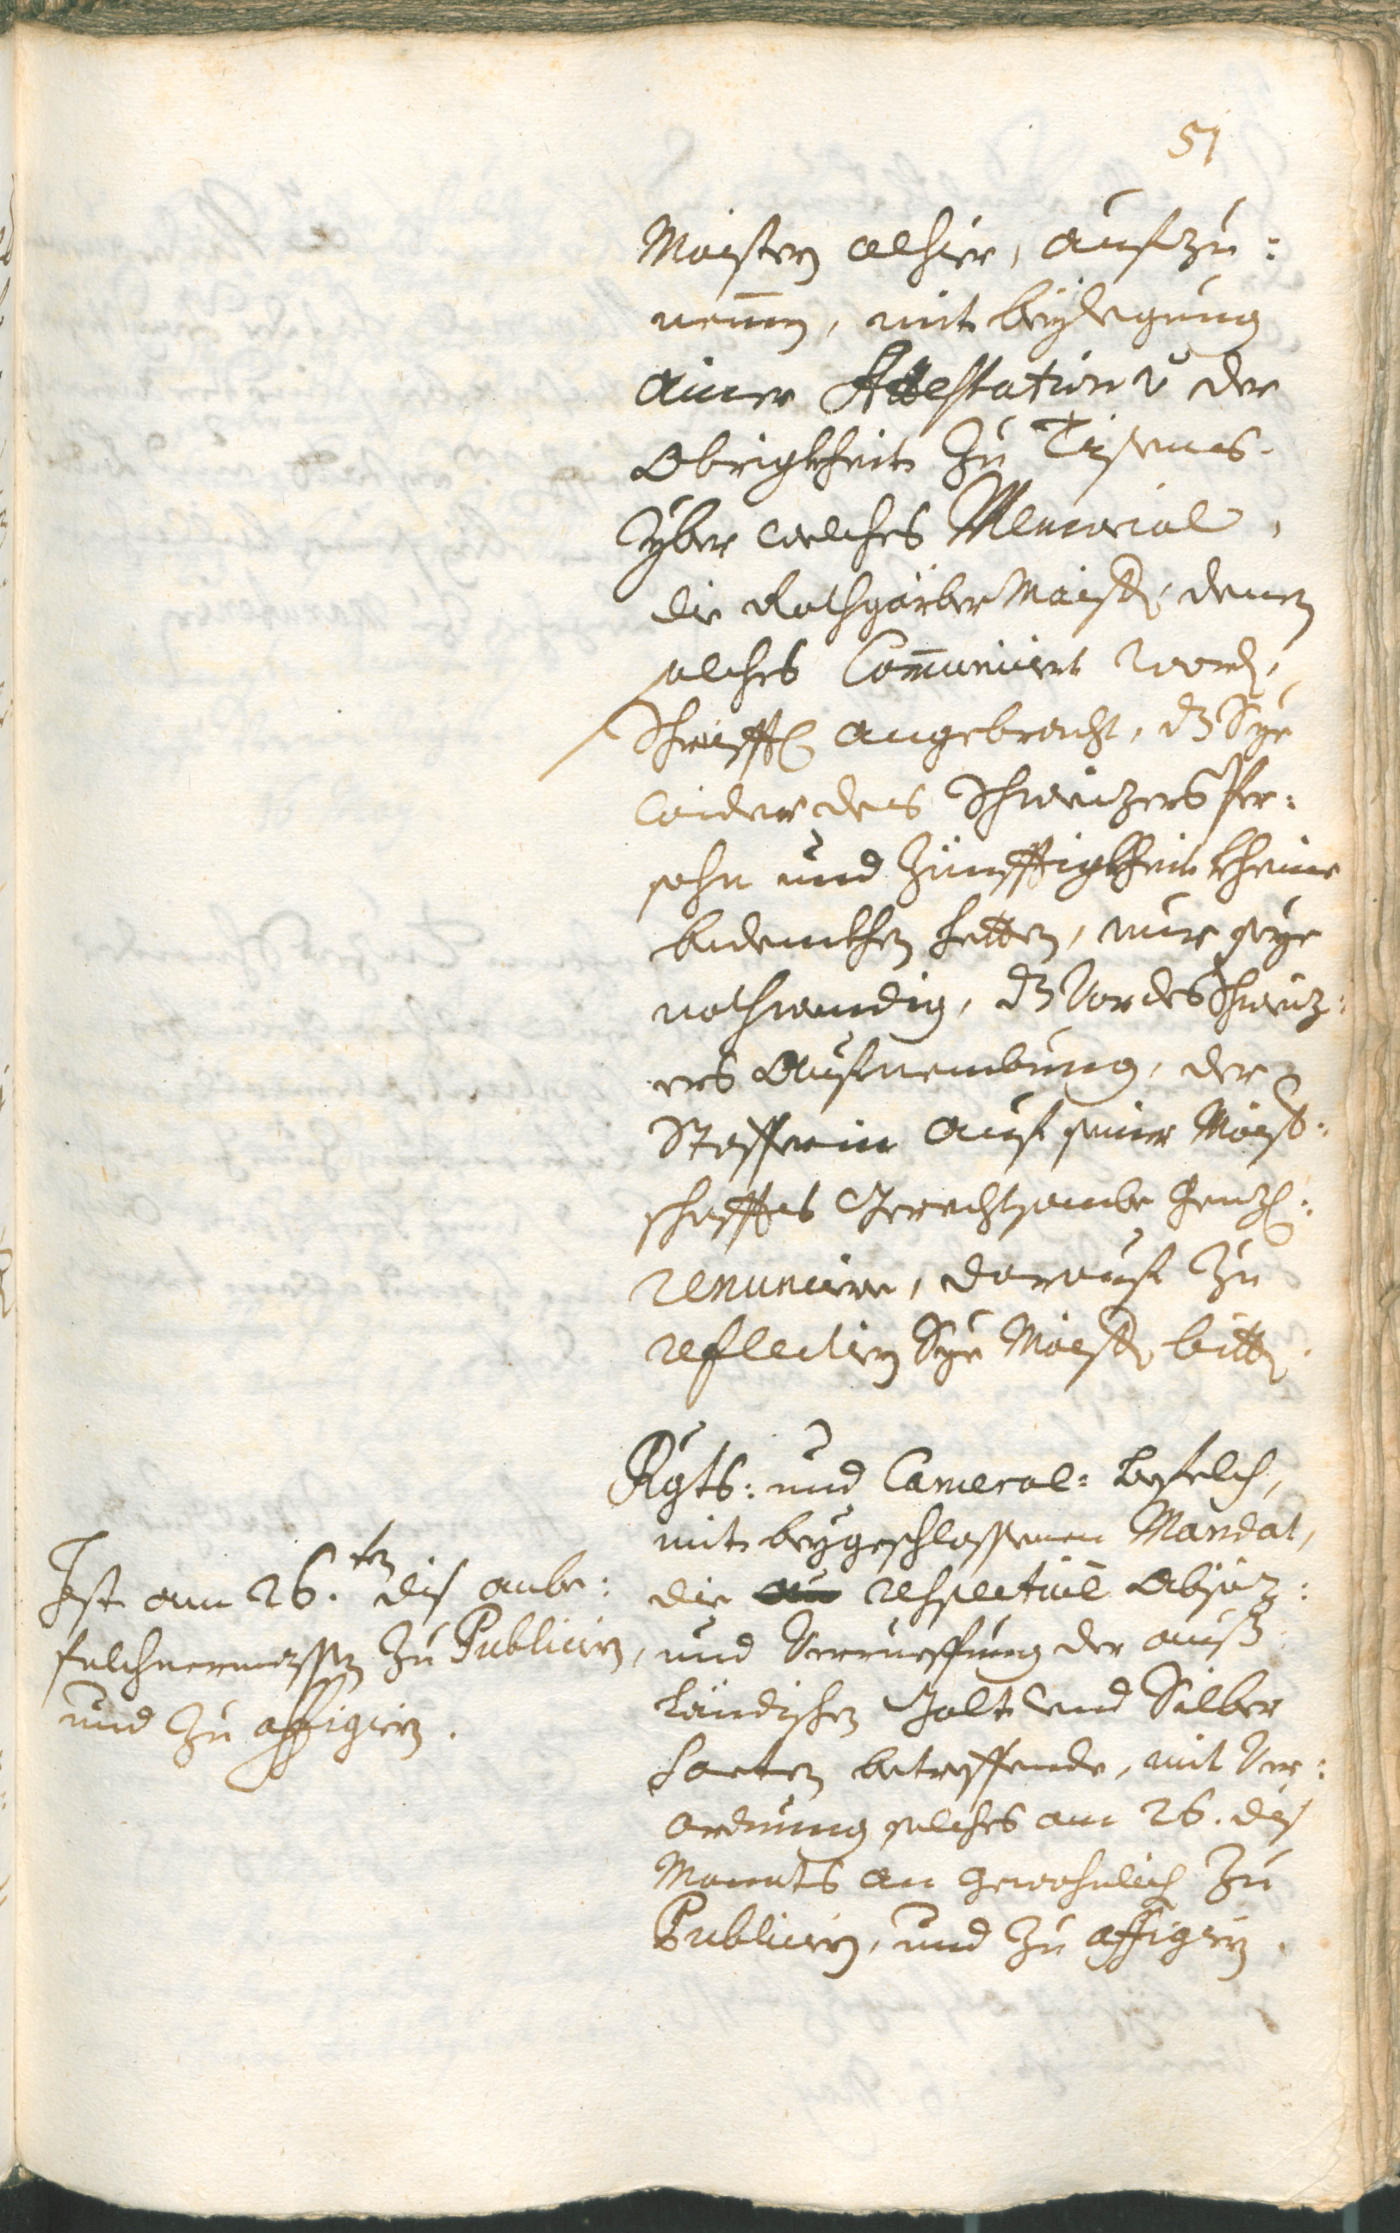 51
Maister alhier, aufzu:
nemmen, mit beylegung
ainer Attestation v der
Obrigkheit zu Tisenns.
Yber welches Memorial,
die Rothgärber Maister, denen
solches Communiciert word,
Schrifftl angebracht, dz Sye
wider des Schweizers Per:
sohn und Zünfftigkheit kheine
bedenckhen hetten, nur seye
nothwendig, dz Vor des Schweiz:
ers Aufnembung, der
auf seiner Maist:
schaffts Gerechtsambe genzl:
renuncire, darauf zu
reflectiern Sye Maister bitten.
Rgts: und Cameral: befelch,
mit beygeschlossenen Mandat,
die respectivè Absaz:
und Verrueffung der auß
ländischen Golt und Silber
Sorten betreffende, mit Ver:
ordnung solches am 26. dis
Monnats an gewohnlich zu
Publiciern, und zu affigiern.
Ist am 26.ten dis anbe:
folchnermassen zu Publiciern,
und zu affigiern.